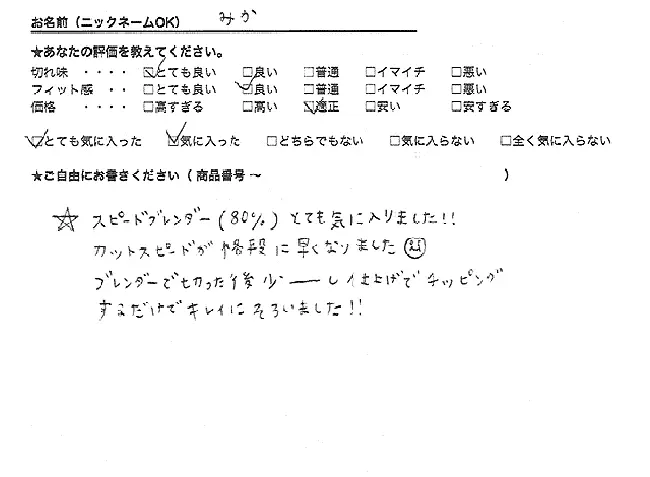 お名前（ニックネームOK） みか
★あなたの評価を教えてください。
切れ味 ・・・・ ☑とても良い □良い □普通 □イマイチ □悪い
フィット感 ・・ □とても良い ☑良い □普通 □イマイチ □悪い
価格 ・・・・ □高すぎる □高い ☑適正 □安い □安すぎる
☑とても気に入った ☑気に入った □どちらでもない □気に入らない □全く気に入らない
★ご自由にお書きください（商品番号～ ）
☆ スピードブレンダー(80%)とても気に入りました!!
カットスピードが格段に早くなりました
ブレンダーでも切った後少ーし仕上げでチッピング
するだけでキレイにそろいました!!